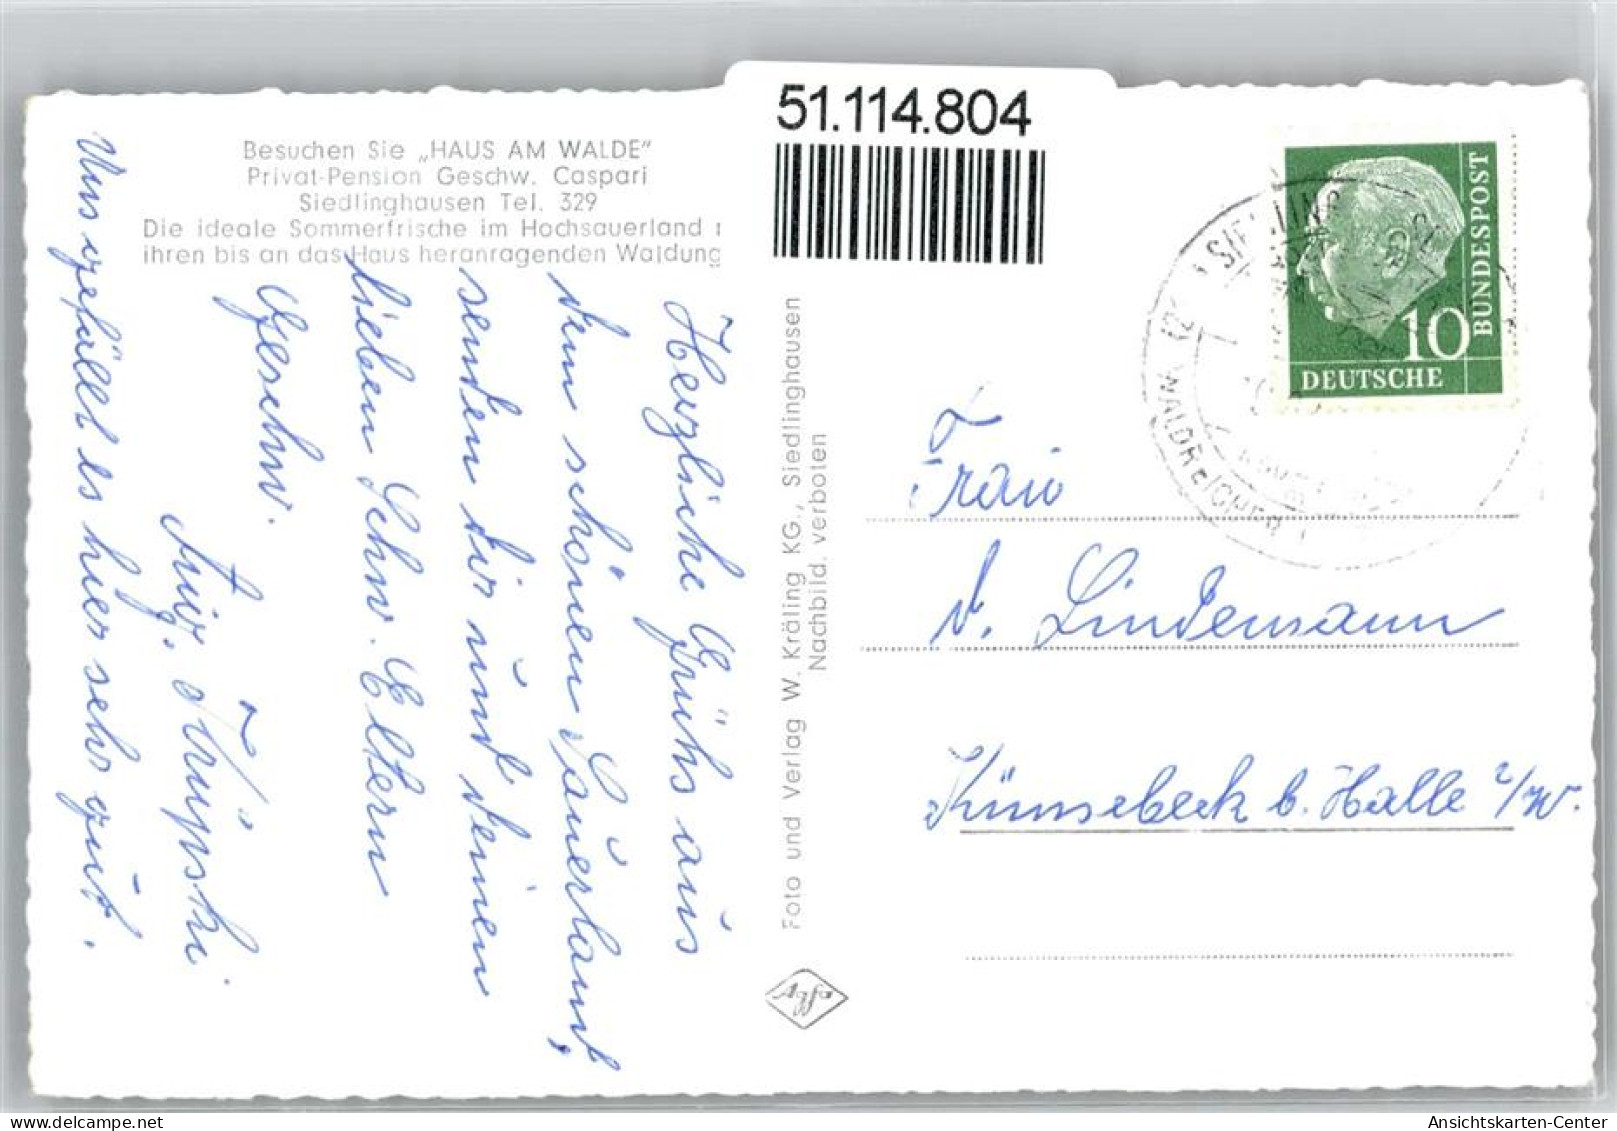 Besuchen Sie „HAUS AM WALDE"
Privat-Pension Geschw. Caspari
Siedlinghausen Tel. 329
Die ideale Sommerfrische im Hochsauerland
ihren bis an das Haus heranragenden Waldung
51.114.804
Herzliche Grüße aus
dem schönen Sauerland,
senden dir und deinen
lieben Schw. Eltern
Geschw.
Uns gefällt es hier sehr gut.
Foto und Verlag W. Kräling KG., Siedlinghausen
Nachbild. verboten
Agfa
DEUTSCHE
BUNDESPOST
10
Frau
Lindemann
Künsebeck b. Halle i/W.
Ansichtskarten-Center